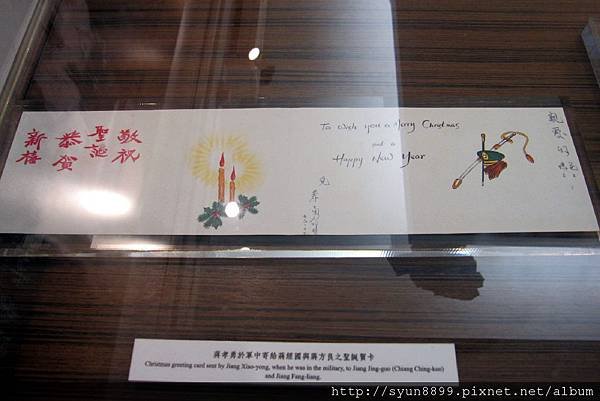 敬祝
聖誕
恭賀
新禧
To wish you a Merry Christmas
and a
Happy New Year
兒
親愛的
蔣孝勇於軍中寄給蔣經國與蔣方良之聖誕賀卡
Christmas greeting card sent by Jiang Xiao-yong, when he was in the military, to Jiang Jing-guo (Chiang Ching-kuo)
and Jiang Fang-liang.
http://syun8899.pixnet.net/album